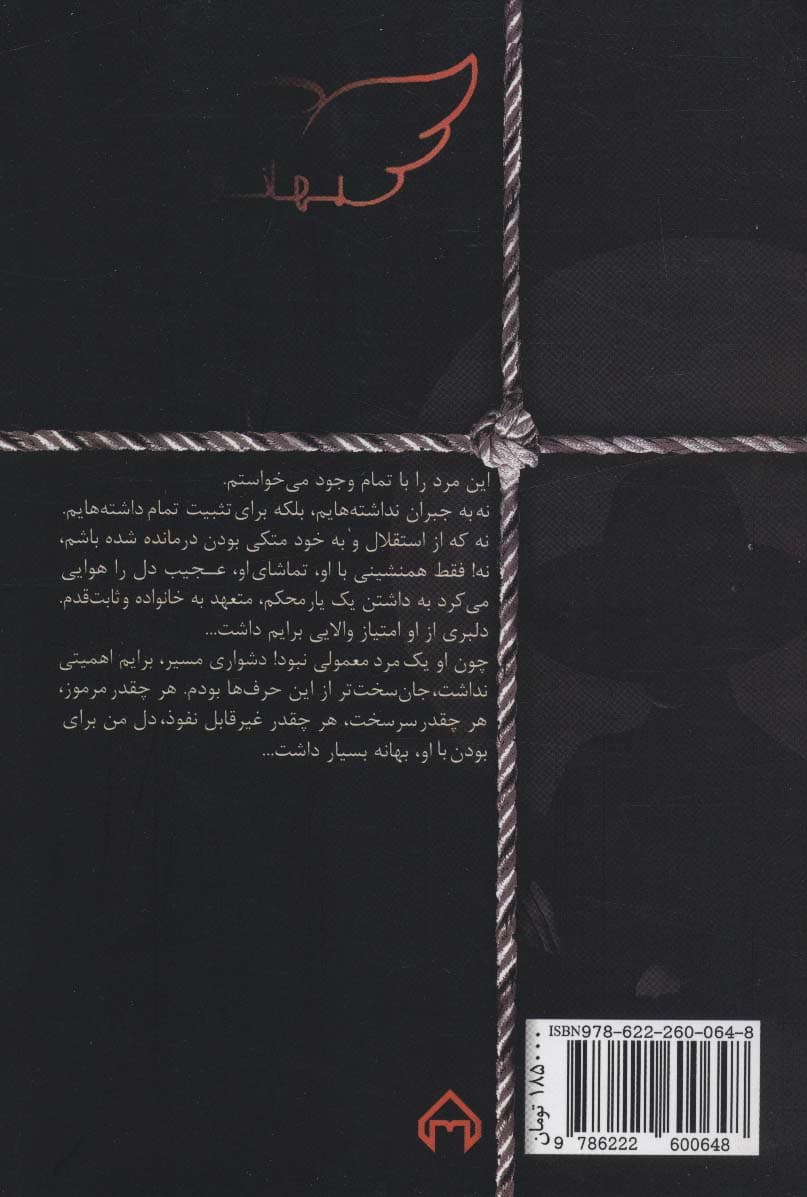 این مرد را با تمام وجود می‌خواستم.
نه به جبران نداشته‌هایم، بلکه برای تثبیت تمام داشته‌هایم.
نه که از استقلال و به خود متکی بودن درمانده شده باشم،
نه! فقط همنشینی با او، تماشای او، عجیب دل را هوایی
می‌کرد به داشتن یک یار محکم، متعهد به خانواده و ثابت‌قدم.
دلبری از او امتیاز والایی برایم داشت...
چون او یک مرد معمولی نبود! دشواری مسیر، برایم اهمیتی
نداشت، جان‌سخت‌تر از این حرف‌ها بودم. هر چقدر مرموز،
هر چقدر سرسخت، هر چقدر غیرقابل نفوذ، دل من برای
بودن با او، بهانه بسیار داشت...
ISBN978-622-260-064-8
9 786222 600648
۱۸۵۰۰۰ تومان